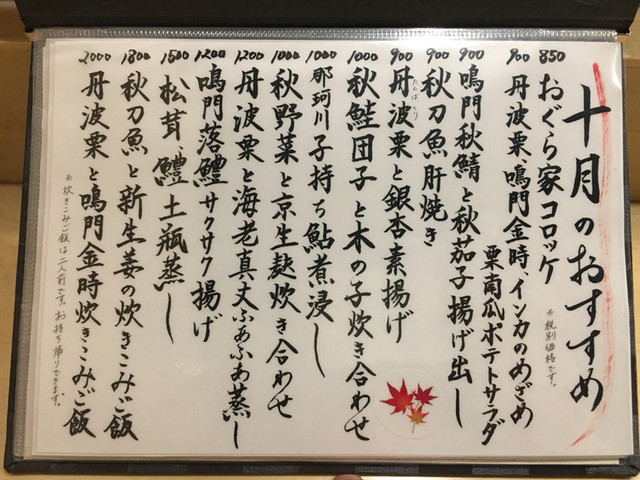 十月のおすすめ
※税別価格です。
850 おぐら家コロッケ
900 丹波栗、鳴門金時、インカのめざめ
栗南瓜ポテトサラダ
900 鳴門秋鯖と秋茄子揚げ出し
900 秋刀魚肝焼き
900 丹波栗と銀杏素揚げ
たんばぐり
1000 秋鮭団子と木の子炊き合わせ
1000 那珂川子持ち鮎煮浸し
1000 秋野菜と京生麩炊き合わせ
1200 丹波栗と海老真丈ふぁふぁ蒸し
1200 鳴門落鱧サクサク揚げ
1500 松茸、鱧土瓶蒸し
1800 秋刀魚と新生姜の炊きこみご飯
2000 丹波栗と鳴門金時炊きこみご飯
※炊きこみご飯は二人前です。お持ち帰りできます。